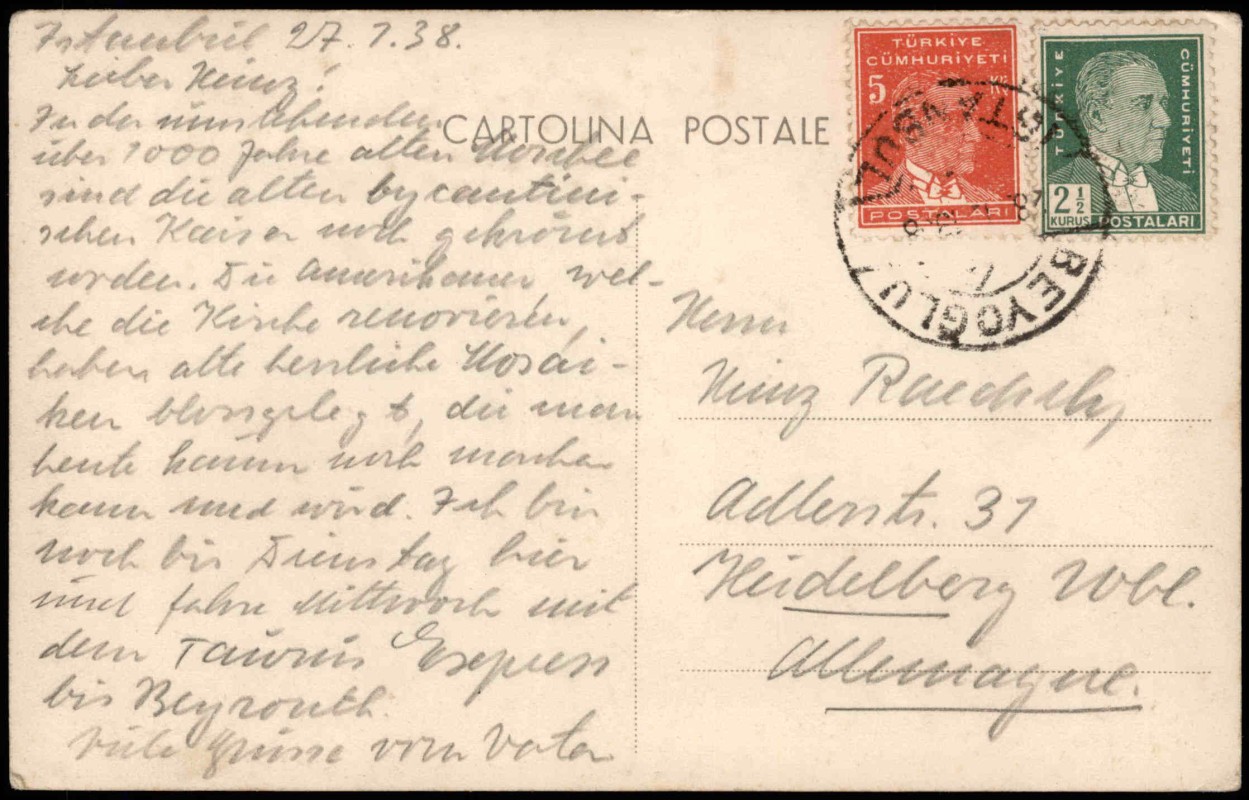 Istanbul 27.7.38.
Lieber Heinz!
In der umstehenden
über 1000 Jahre alten Moschee
sind die alten bycantini-
schen Kaiser noch gekrönt
worden. Die Amerikaner wel-
che die Kirche renovieren,
haben alte herrliche Mosai-
ken blossgelegt, die man
heute kaum noch machen
kann und wird. Ich bin
noch bis Dienstag hier
und fahre Mittwoch mit
dem Taurus Express
bis Beyrouth.
Viele Grüsse vom Vater
CARTOLINA POSTALE
TÜRKİYE
CÜMHURİYETİ
5 Kr.
POSTALARI
TÜRKİYE
CÜMHURİYETİ
2 1/2
KURUŞ POSTALARI
İSTANBUL
BEYOĞLU
Herrn
Heinz
Adlerstr. 31
Heidelberg Wbl.
Allemagne.